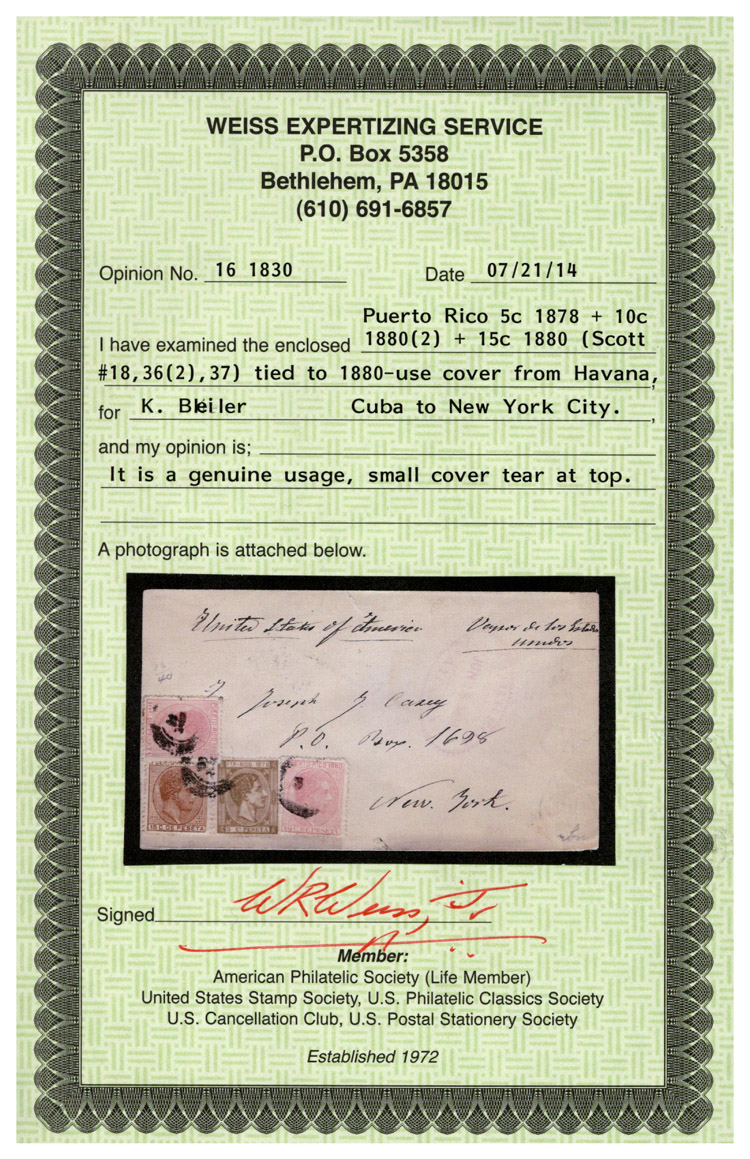 WEISS EXPERTIZING SERVICE
P.O. Box 5358
Bethlehem, PA 18015
(610) 691-6857
Opinion No. 16 1830 Date 07/21/14
Puerto Rico 5c 1878 + 10c
I have examined the enclosed 1880(2) + 15c 1880 (Scott
#18,36(2),37) tied to 1880-use cover from Havana,
for K. Bleiler Cuba to New York City.,
and my opinion is;
It is a genuine usage, small cover tear at top.
A photograph is attached below.
United States of America
Vapor de los Estados
Unidos
Joseph J. Casey
P.O. Box. 1698
New. York.
15 C. DE PESETA
Signed WRWeiss, Jr.
Member:
American Philatelic Society (Life Member)
United States Stamp Society, U.S. Philatelic Classics Society
U.S. Cancellation Club, U.S. Postal Stationery Society
Established 1972